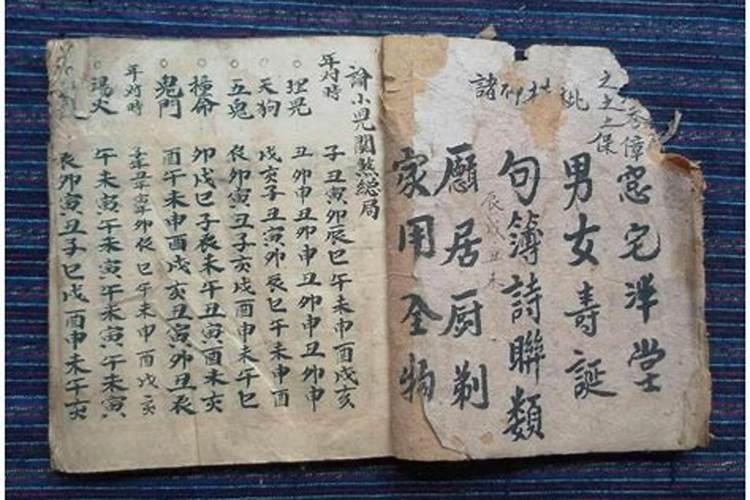 諸神
男女壽誕
句簿詩聯類
辰戌丑未
愿居厨剃
家用全物
論小児関煞總局
年对時 子丑寅卯辰巳午未申酉戌亥
埋児 丑卯申丑卯申丑卯申丑卯申
天狗 戌亥子丑寅卯辰巳午未申酉
五鬼 辰卯寅丑子亥戌酉申未午巳
撞命 卯戌巳子辰未午丑寅酉未亥
鬼門 酉午未申酉戌亥丑寅卯丑辰
年对時 子丑寅卯辰巳午未申酉戌亥
湯火 午未寅午未寅午未寅午未寅
辰卯寅丑子巳戌酉申未午亥